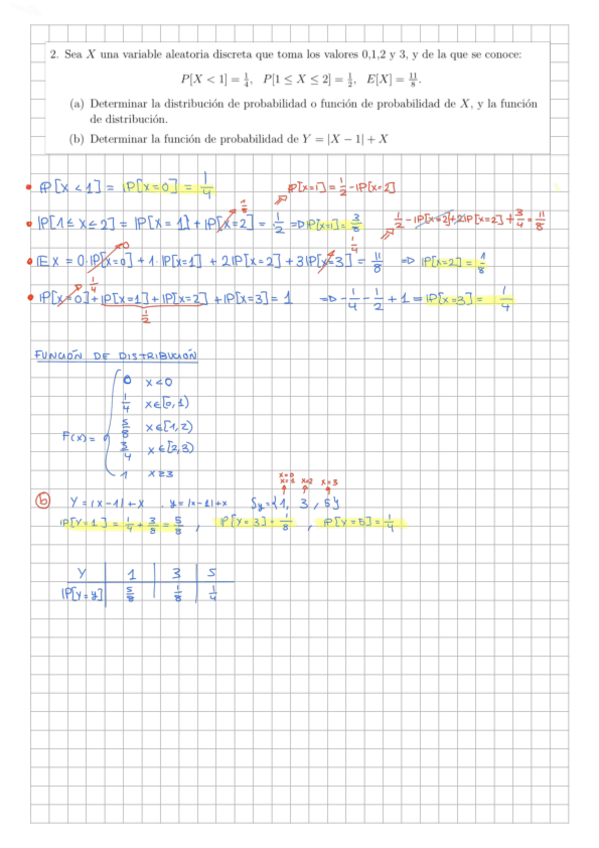 2. Sea X una variable aleatoria discreta que toma los valores 0,1,2 y 3, y de la que se conoce:
P[X < 1] = 1/4, P[1 ≤ X ≤ 2] = 1/2, E[X] = 11/8.
(a) Determinar la distribución de probabilidad o función de probabilidad de X, y la función
de distribución.
(b) Determinar la función de probabilidad de Y = |X − 1| + X
• IP[X < 1] = IP[X=0] = 1/4
IP[X=1] = 1/2 - IP[X=2]
• IP[1 ≤ X ≤ 2] = IP[X = 1] + IP[X=2] = 1/2 => IP[X=1] = 3/8
1/8
1/2 - IP[X=2] + 2IP[X=2] + 3/4 = 11/8
• IE X = 0·IP[X=0] + 1·IP[X=1] + 2IP[X=2] + 3IP[X=3] = 11/8 => IP[X=2] = 1/8
0
1/4
• IP[X=0] + IP[X=1] + IP[X=2] + IP[X=3] = 1 => -1/4 - 1/2 + 1 = IP[X=3] = 1/4
1/4
1/2
FUNCIÓN DE DISTRIBUCIÓN
F(x) =
0 x<0
1/4 x∈[0,1)
5/8 x∈[1,2)
3/4 x∈[2,3)
1 x≥3
x=0
x=1 x=2 x=3
(b) Y = |X-1| + X . y = |x-1| + x Sy = {1, 3, 5}
IP[Y=1] = 1/4 + 3/8 = 5/8 , IP[Y=3] = 1/8 , IP[Y=5] = 1/4
Y 1 3 5
IP[Y=y] 5/8 1/8 1/4